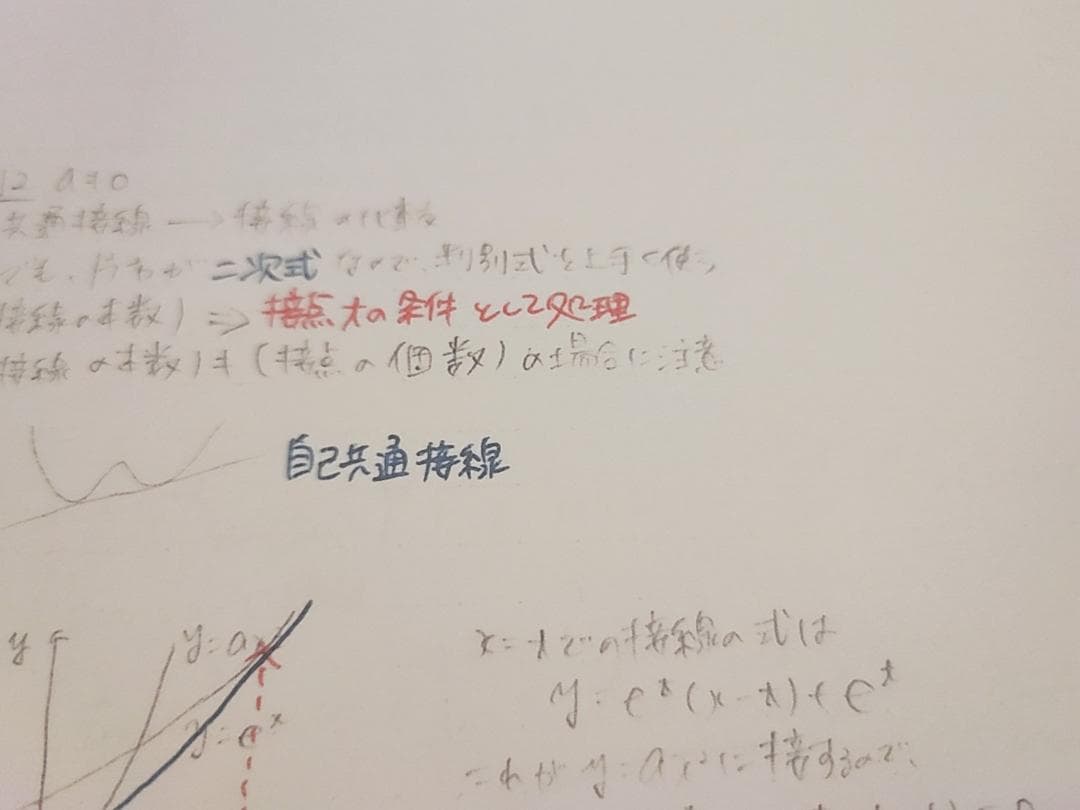 12 a≠0
共通接線 → 接線の
二次式 なので、判別式を上手く使う
接線の本数) ⇒ 接点tの条件として処理
接線の本数)≠(接点の個数)の場合に注意
自己共通接線
y
y=ax
y=e^x
x=tでの接線の式は
y=e^t(x-t)+e^t
これが y=ax²に接するので、